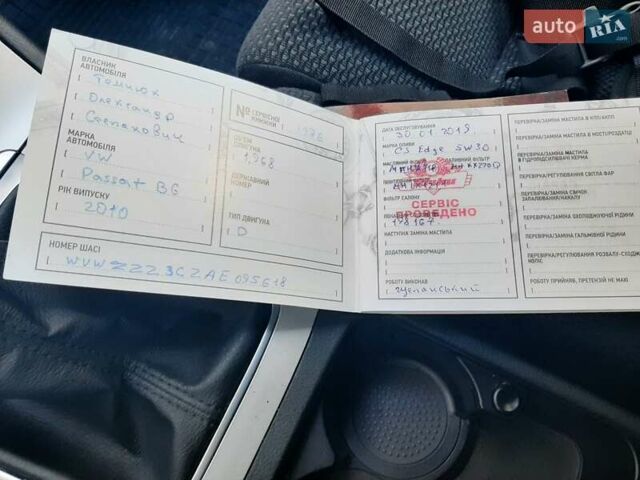 auto RIA .com
ВЛАСНИК
АВТОМОБІЛЯ
Томнюк
Олександр
Степанович
МАРКА
АВТОМОБІЛЯ
VW
Passat B6
РІК ВИПУСКУ
2010
№ СЕРВІСНОЇ
КНИЖКИ
1976
ОБ'ЄМ
ДВИГУНА
1,968
ДЕРЖАВНИЙ
НОМЕР
ТИП ДВИГУНА
D
НОМЕР ШАСІ
WVWZZZ3CZAE095618
ДАТА ОБСЛУГОВУВАННЯ
30.01.2019.
МАРКА ОЛИВИ
CS Edge 5W30
МАСЛЯНИЙ ФІЛЬТР
ПАЛИВНИЙ ФІЛЬТР
ФІЛЬТР САЛОНУ
СЕРВІС
ПРОВЕДЕНО
178167
НАСТУПНА ЗАМІНА МАСТИЛА
ДОДАТКОВА ІНФОРМАЦІЯ
РОБОТУ ВИКОНАВ
ПЕРЕВІРКА/ЗАМІНА МАСТИЛА В КПП/АКПП
ПЕРЕВІРКА/ЗАМІНА МАСТИЛА
В ГІДРОПІДСИЛЮВАЧІ КЕРМА
ПЕРЕВІРКА/РЕГУЛЮВАННЯ СВІТЛА ФАР
ПЕРЕВІРКА/ЗАМІНА СВІЧОК
ЗАПАЛЮВАННЯ/НАКАЛУ
ПЕРЕВІРКА/ЗАМІНА ОХОЛОДЖУЮЧОЇ РІДИНИ
ПЕРЕВІРКА/ЗАМІНА ГАЛЬМІВНОЇ РІДИНИ
РОБОТУ ПРИЙНЯВ, ПРЕТЕНЗІЙ НЕ МАЮ